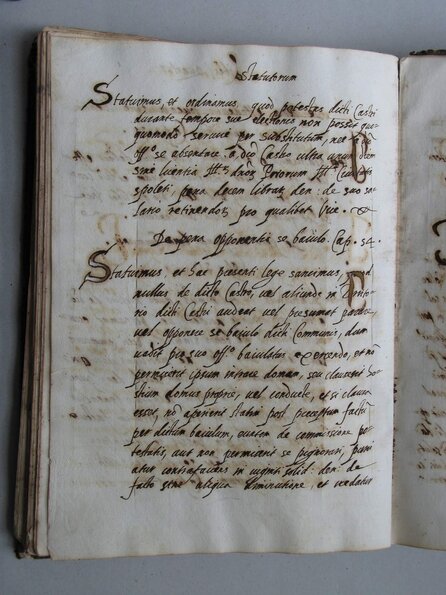 Statutorum
Statuimus, et ordinamus quod potestas dicti Castri
durante tempore sue electionis non possit quo-
quomodo servire per substitutum, nec
off.º se absentare a d.º Castro ultra
sine licentia Ill. dnor Priorum Ill.
spoleti pena decem librar den: de suo sa-
lario retinendor pro qualibet vice
De pena opponentis se baiulo. Cap. 54.
Statuimus, et hac presenti lege sancimus,
nullus de dicto Castro, vel aliunde in
rio dicti Castri audeat vel presumat
vel opponere se baiulo dicti Communis, dum
vadit pro suo off.º baiulatus exercendo, et nō
permiserit ipsum intrare domum, seu clauserit ho-
stium domus proprie, vel conducte, et si clau-
esset, nō aperierit statim post preceptum factū
per dictum baiulum, euntem de commissione po-
testatis, aut non permiserit se pignorari, puni
atur contrafaciens in viginti solid: den: de
facto sine aliqua diminutione, et credatur